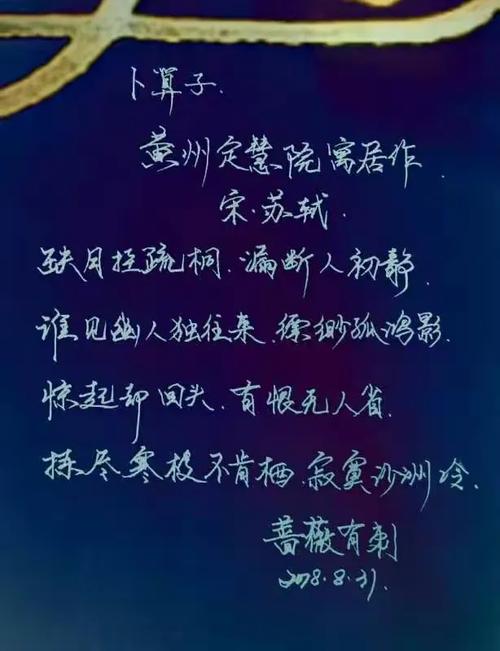 卜算子.
黄州定慧院寓居作.
宋.苏轼.
缺月挂疏桐.漏断人初静.
谁见幽人独往来.缥缈孤鸿影.
惊起却回头.有恨无人省.
拣尽寒枝不肯栖.寂寞沙洲冷.
蔷薇有刺
2018.8.31.